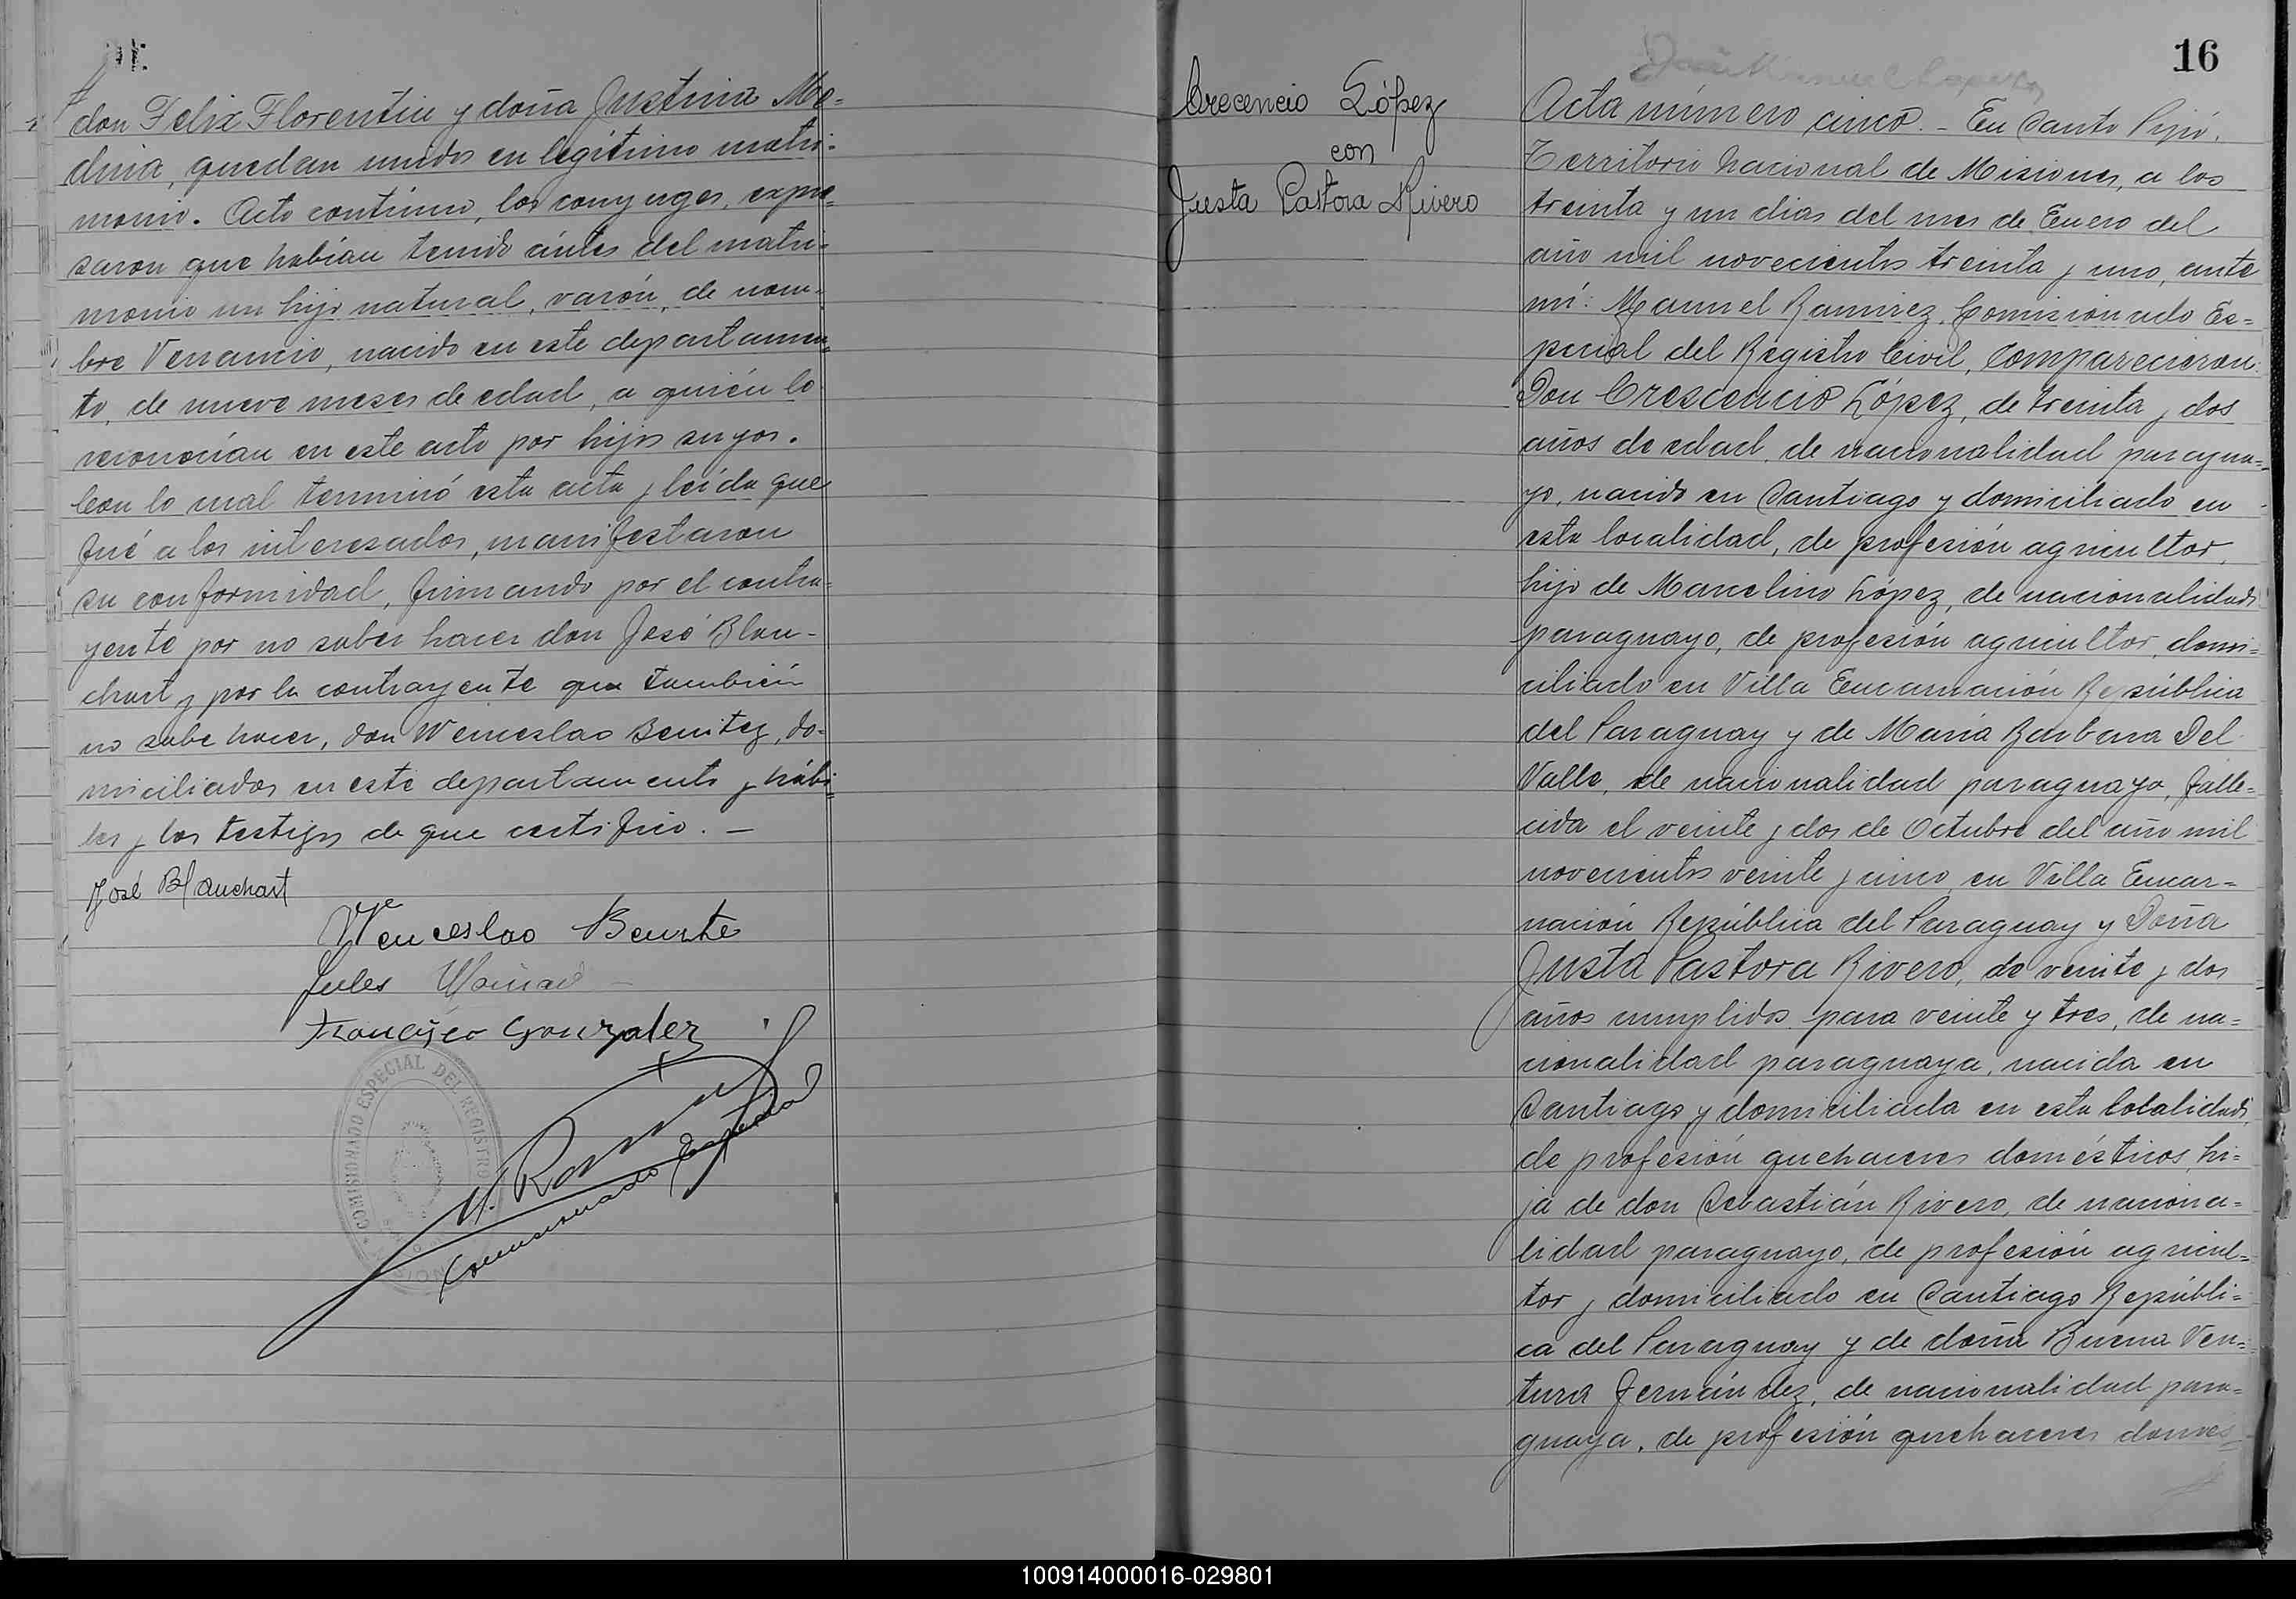 don Felix Florentin y doña Justina Me=
dina, quedan unidos en legítimo matri-
monio. Acto contínuo, los conyuges, expre=
saron que habían tenido ántes del matri=
monio un hijo natural, varón, de nom-
bre Venancio, nacido en este departamen=
to, de nueve meses de edad, a quién lo
reconocían en este acto por hijos suyos.
Con lo cual terminó esta acta y leída que
fué a los interesados, manifestaron
su conformidad, firmando por el contra=
yente por no saber hacer don José Blan-
chart y por la contrayente que también
no sabe hacer, don Wenceslao Benitez, do-
miciliados en este departamento y hábi=
les y los testigos de que certifico. —
José Blanchart
Wenceslao Benite
Jules
Francisco Gonzalez
M. Ramirez
Comisionado Especial
COMISIONADO ESPECIAL DEL REGISTRO
16
Crecencio López
con
Justa Pastora Rivero
Acta número cinco. - En Santo Pipó,
Territorio Nacional de Misiones, a los
treinta y un dias del mes de Enero del
año mil novecientos treinta y uno, ante
mí: Manuel Ramirez, Comisionado Es=
pecial del Registro Civil, comparecieron:
Don Crescencio López, de treinta y dos
años de edad, de nacionalidad paragua=
yo, nacido en Santiago y domiciliado en
esta localidad, de profesión agricultor,
hijo de Marcelino López, de nacionalidad
paraguayo, de profesión agricultor, domi=
ciliado en Villa Encarnación República
del Paraguay y de María Barbara Del
Valle, de nacionalidad paraguaya, falle=
cida el veinte y dos de Octubre del año mil
novecientos veinte y cinco, en Villa Encar=
nación República del Paraguay y Doña
Justa Pastora Rivero, de veinte y dos
años cumplidos para veinte y tres, de na=
cionalidad paraguaya, nacida en
Santiago y domiciliada en esta localidad,
de profesión quehaceres domésticos, hi=
ja de don Sebastián Rivero, de naciona=
lidad paraguayo, de profesión agricul=
tor y domiciliado en Santiago Repúbli=
ca del Paraguay y de doña Buena Ven=
tura Fernández, de nacionalidad para=
guaya, de profesión quehaceres domés=
100914000016-029801